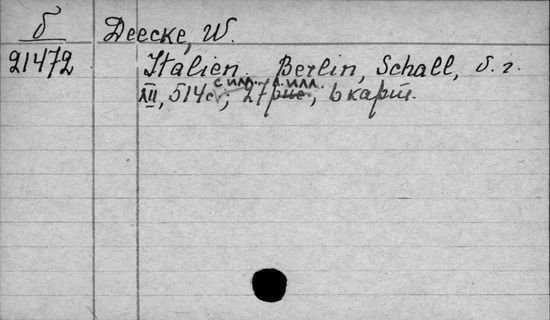 б Deecke, W.
21472 Italien. Berlin, Schall, б. г.
с илл. л. илл.
XII, 514с.; 27 рис., 6 карт.